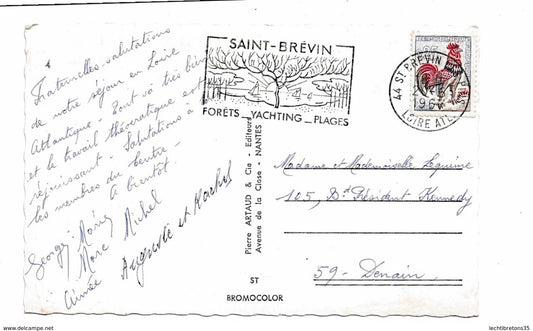 Fraternelles salutations
de notre séjour en Loire
Atlantique. Tout va très bien
et le travail théocratique est
réjouissant. Salutations à
les membres du Centre.
A bientôt.
Georges Marie
Marc Michel
Aimée Auguste et Rachel
SAINT-BRÉVIN
FORÊTS _ YACHTING _ PLAGES
44 ST BREVIN
LOIRE ATL
196
Pierre ARTAUD & Cie - Editeurs
Avenue de la Close - NANTES
ST
BROMOCOLOR
Madame et Mademoiselle Lequime
105, Bd Président Kennedy
59 - Denain
lechtibretons35
lechtibretons35